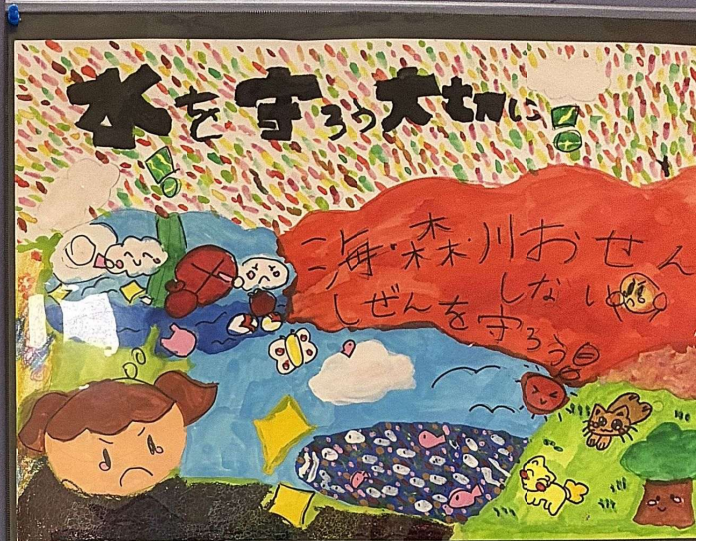 水を守ろう大切に!
海・森・川おせん
しない
しぜんを守ろう!